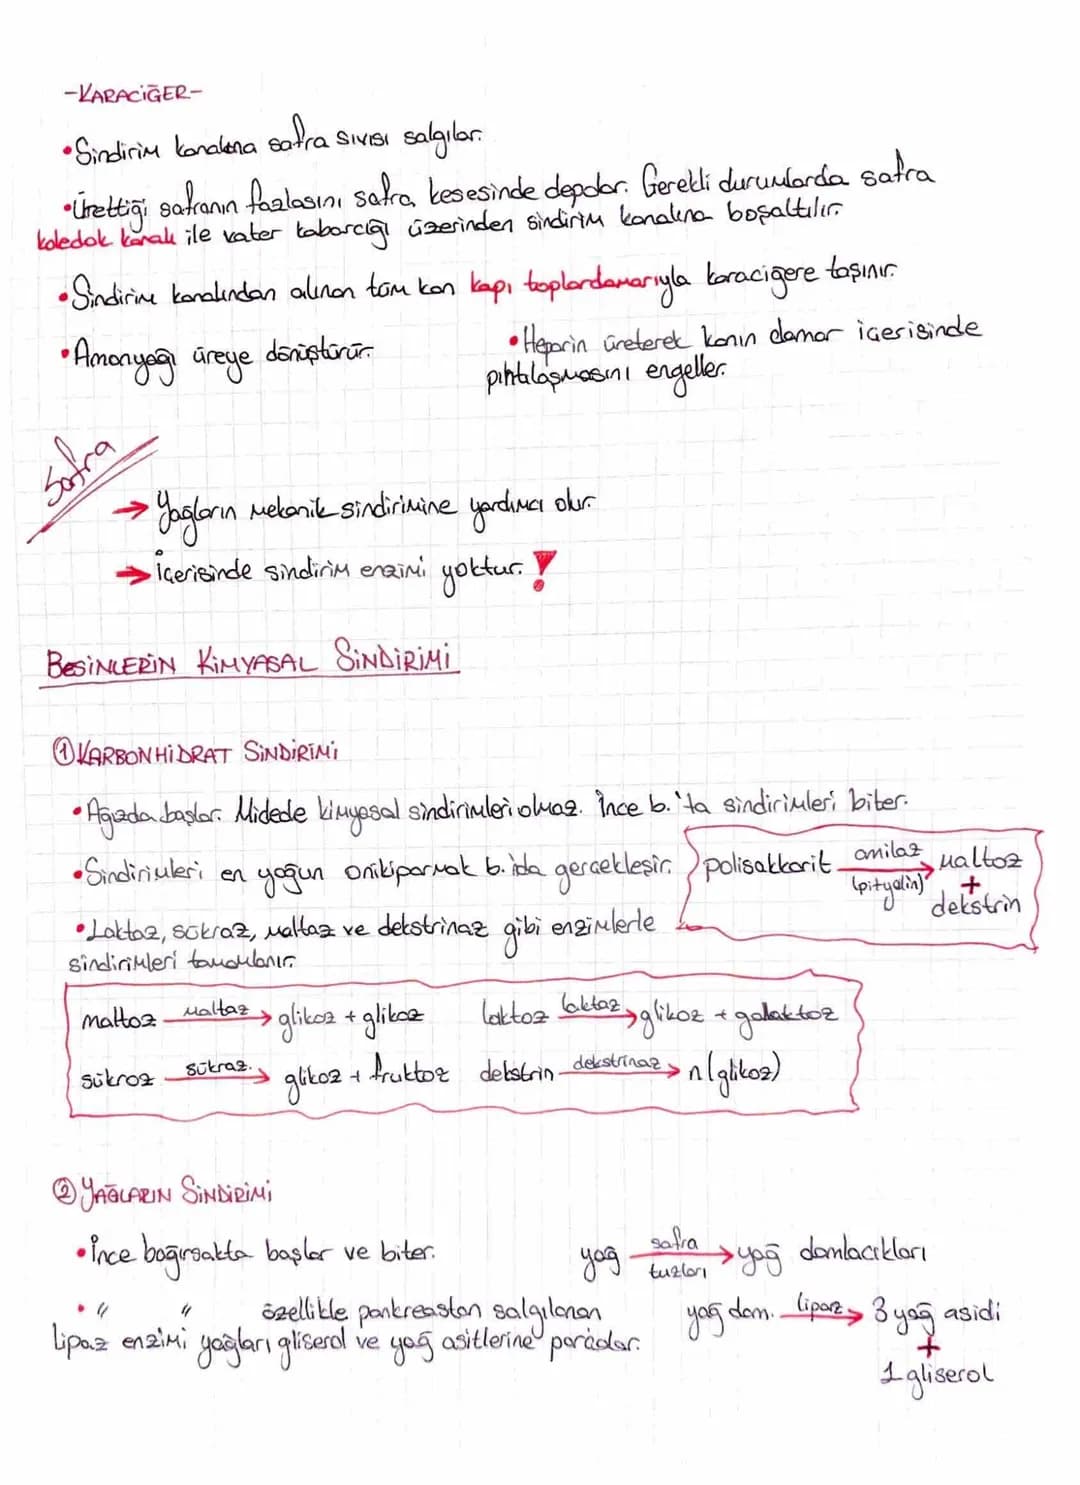 -KARACİĞER-
•Sindirim kanalına safra sıvısı salgılar.
•Ürettiği safranın fazlasını safra kesesinde depolar. Gerekli durumlarda safra
koledok kanalı ile vater kabarcığı üzerinden sindirim kanalına boşaltılır.
•Sindirim kanalından alınan tüm kan kapı toplardamarıyla karaciğere taşınır.
•Amonyağı üreye dönüştürür.
•Heparin üreterek kanın damar içerisinde
pıhtılaşmasını engeller.
Safra
→ Yağların mekanik sindirimine yardımcı olur.
→ İçerisinde sindirim enzimi yoktur. !
BESİNLERİN KİMYASAL SİNDİRİMİ
① KARBONHİDRAT SİNDİRİMİ
•Ağızda başlar. Midede kimyasal sindirimleri olmaz. İnce b.'ta sindirimleri biter.
•Sindirimleri en yoğun onikiparmak b.'ıda gerçekleşir.
polisakkarit amilaz → maltoz
(pityalin) +
dekstrin
•Laktaz, sükraz, maltaz ve dekstrinaz gibi enzimlerle
sindirimleri tamamlanır.
maltoz maltaz → glikoz + glikoz laktoz laktaz → glikoz + galaktoz
sükroz sükraz. → glikoz + fruktoz dekstrin dekstrinaz → n(glikoz)
② YAĞLARIN SİNDİRİMİ
•İnce bağırsakta başlar ve biter.
yağ safra tuzları → yağ damlacıkları
• " " özellikle pankreastan salgılanan
lipaz enzimi yağları gliserol ve yağ asitlerine parçalar.
yağ dam. lipaz → 3 yağ asidi
+
1 gliserol